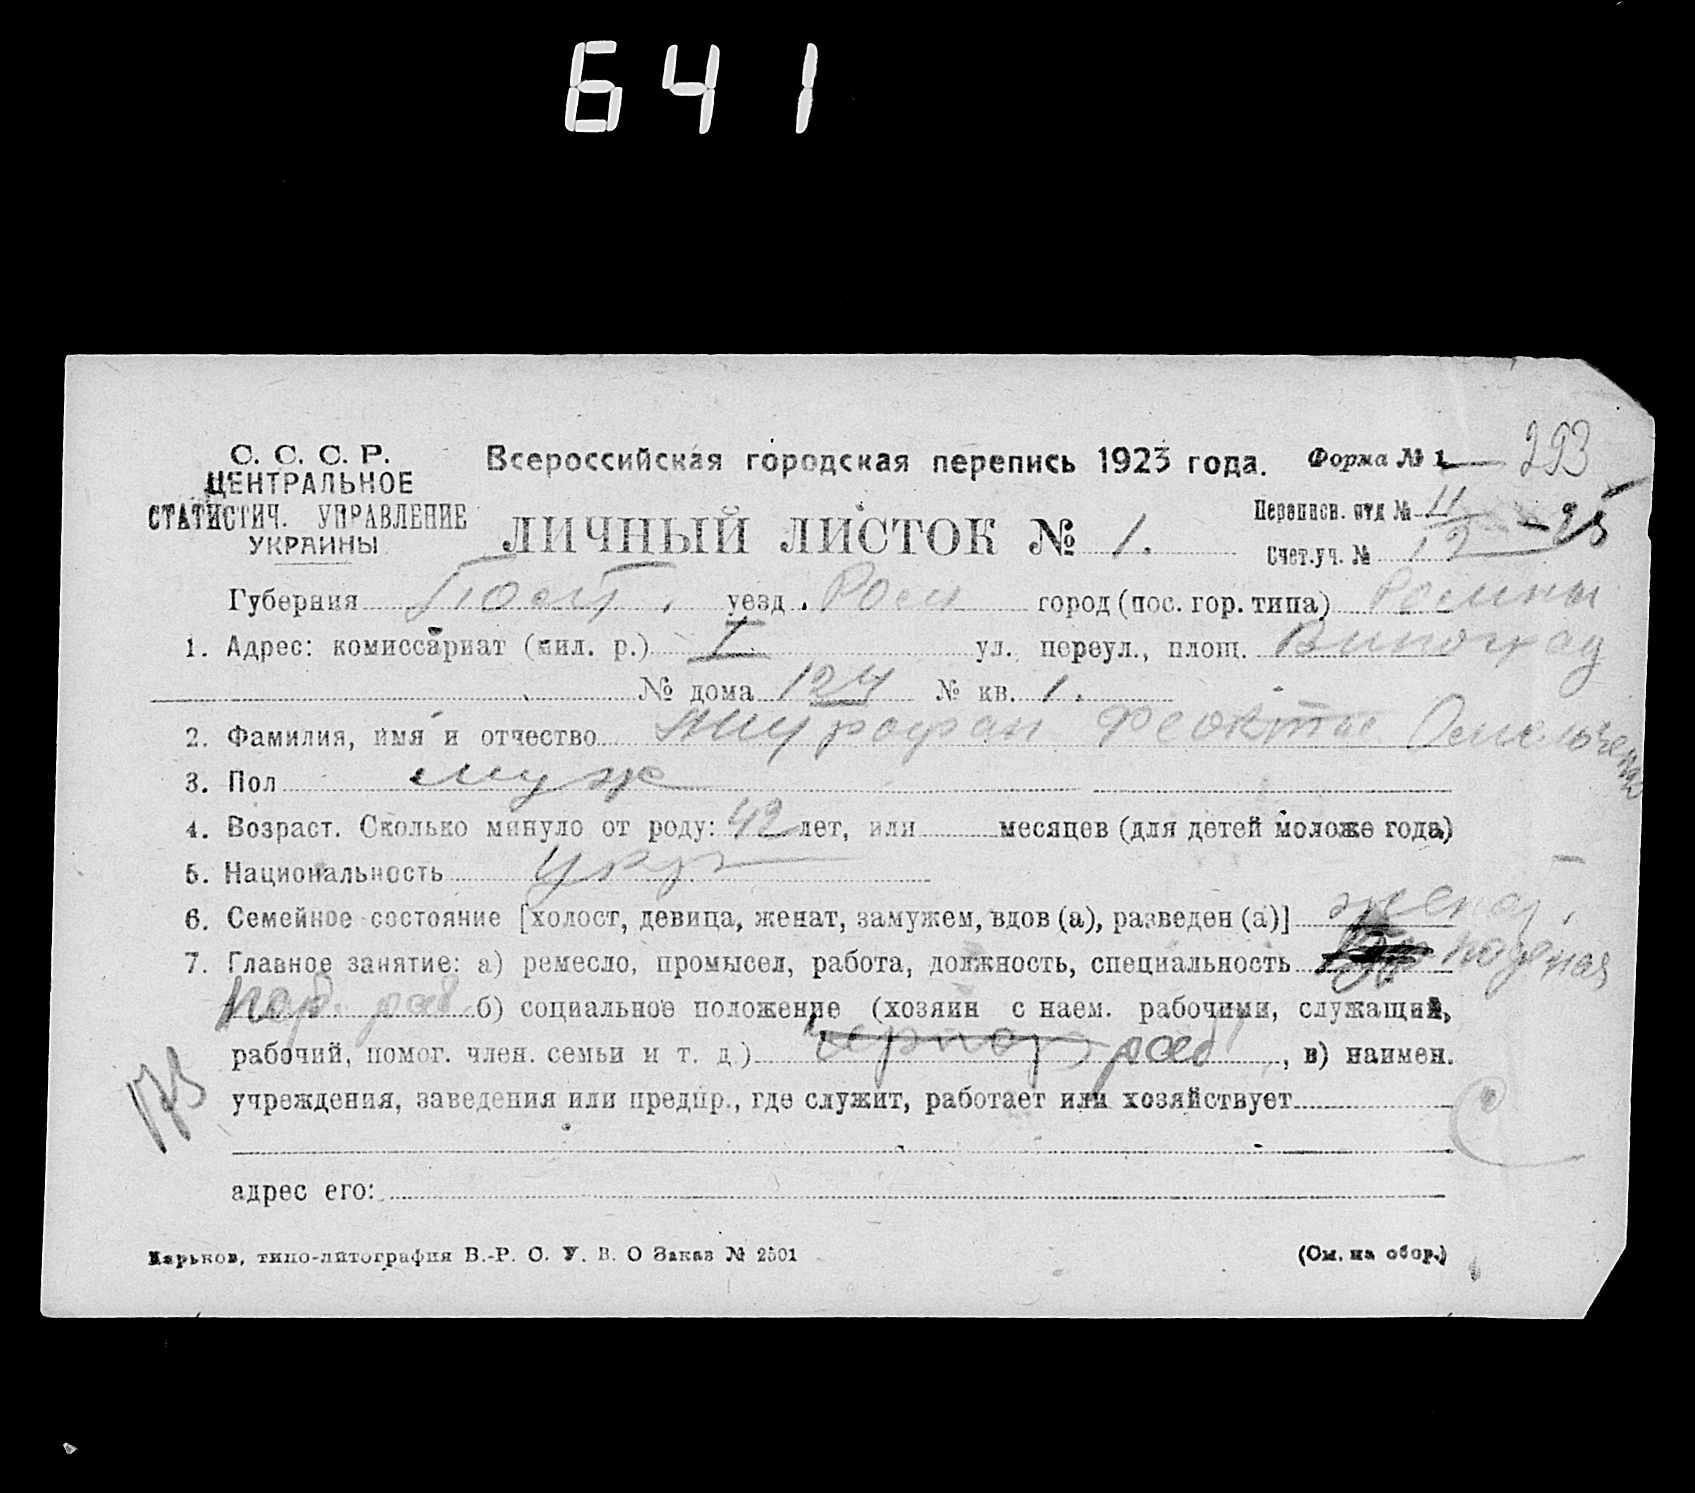 641
С. С. С. Р. Всероссийская городская перепись 1923 года. Форма № 1 293
ЦЕНТРАЛЬНОЕ
СТАТИСТИЧ. УПРАВЛЕНИЕ
УКРАИНЫ
ЛИЧНЫЙ ЛИСТОК № 1.
Переписн. отд № 11 - 25
Счет.уч. № 12
Губерния Полт. уезд. Ром город (пос. гор. типа) Ромны
1. Адрес: комиссариат (мил. р.) I ул., переул., площ. Виноград
№ дома 124 № кв. 1.
2. Фамилия, имя и отчество Омельченко
3. Пол муж
4. Возраст. Сколько минуло от роду: 42 лет, или месяцев (для детей моложе года)
5. Национальность укр
6. Семейное состояние [холост, девица, женат, замужем, вдов (а), разведен (а)] женат.
7. Главное занятие: а) ремесло, промысел, работа, должность, специальность поденная
раб. б) социальное положение (хозяин с наем. рабочими, служащий,
рабочий, помог. член. семьи и т. д.) чернор раб , в) наимен.
173
учреждения, заведения или предпр., где служит, работает или хозяйствует
адрес его:
Харьков, типо-литография В.-Р. С. У. В. О Заказ № 2501 (См. на обор.)